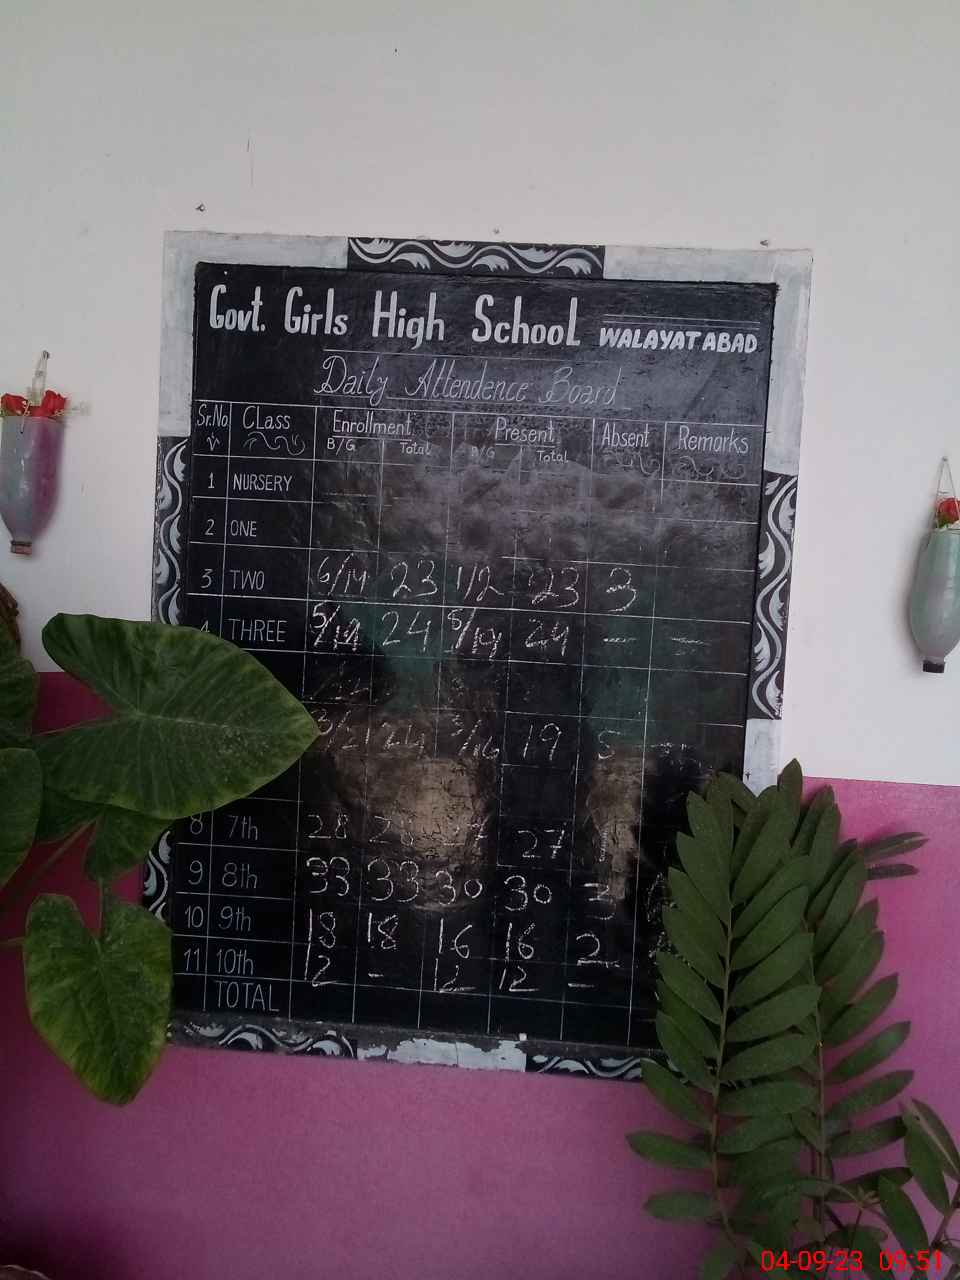 Govt. Girls High School WALAYAT ABAD
Daily Attendence Board
Sr.No Class Enrollment Present Absent Remarks
B/G Total B/G Total
1 NURSERY
2 ONE
3 TWO 6/14 23 1/2 23 3
4 THREE 5/19 24 5/19 24 — —
3/21 24 3/16 19 5 —
8 7th 28 28 27 27 1
9 8th 33 33 30 30 3
10 9th 18 18 16 16 2
11 10th 12 - 12 12 -
TOTAL
04-09-23 09:51